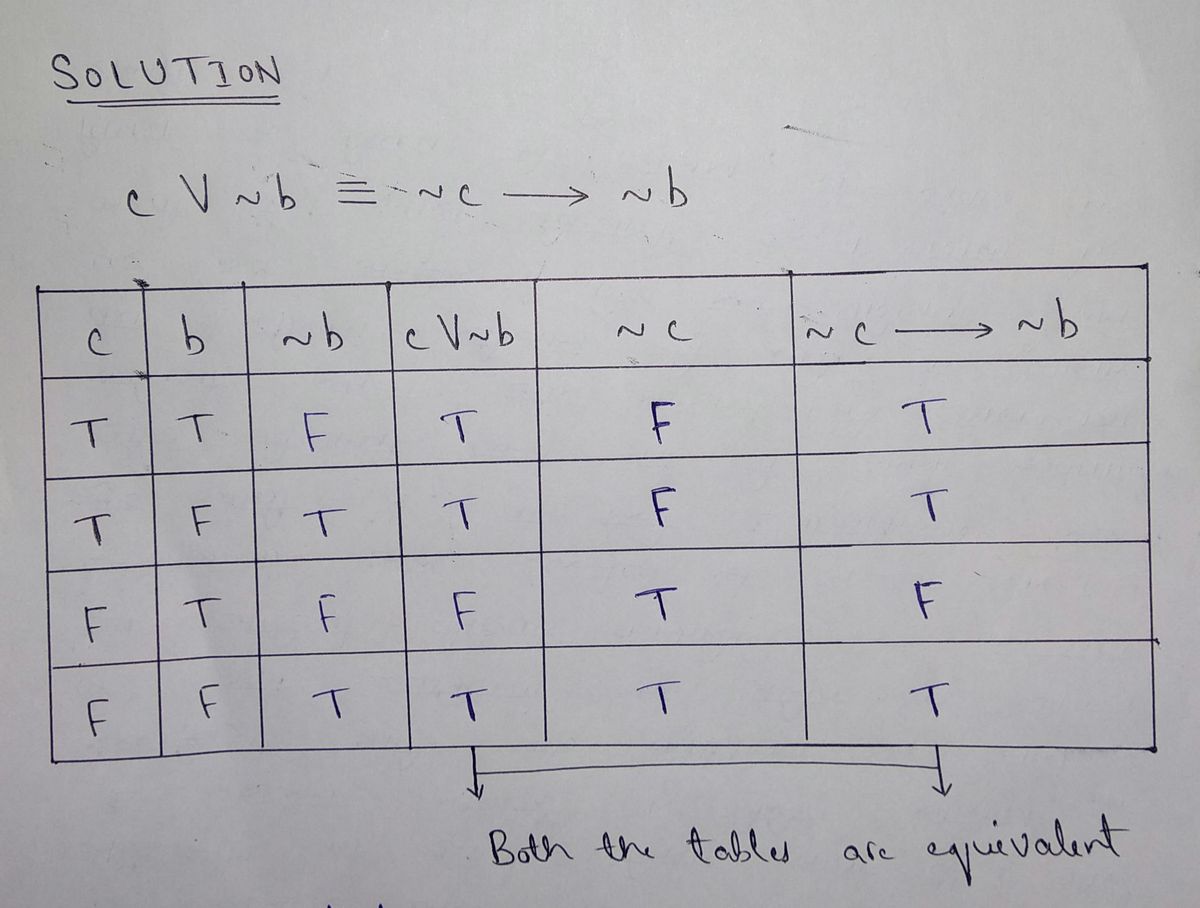 SOLUTION
c V ~b ≡ ~c ⟶ ~b
c b ~b c V ~b ~c ~c ⟶ ~b
T T F T F T
T F T T F T
F T F F T F
F F T T T T
Both the tables are equivalent